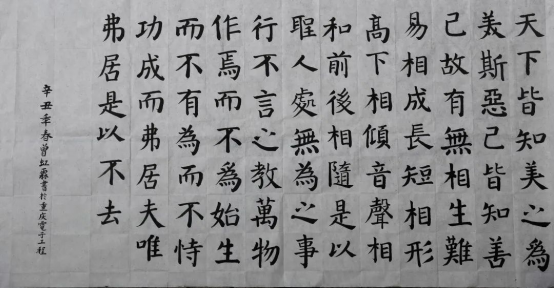 天下皆知美之為
美斯惡已皆知善
已故有無相生難
易相成長短相形
高下相傾音聲相
和前後相隨是以
聖人處無為之事
行不言之教萬物
作焉而不爲始生
而不有為而不恃
功成而弗居夫唯
弗居是以不去
辛丑年春曾書於重慶電子工程